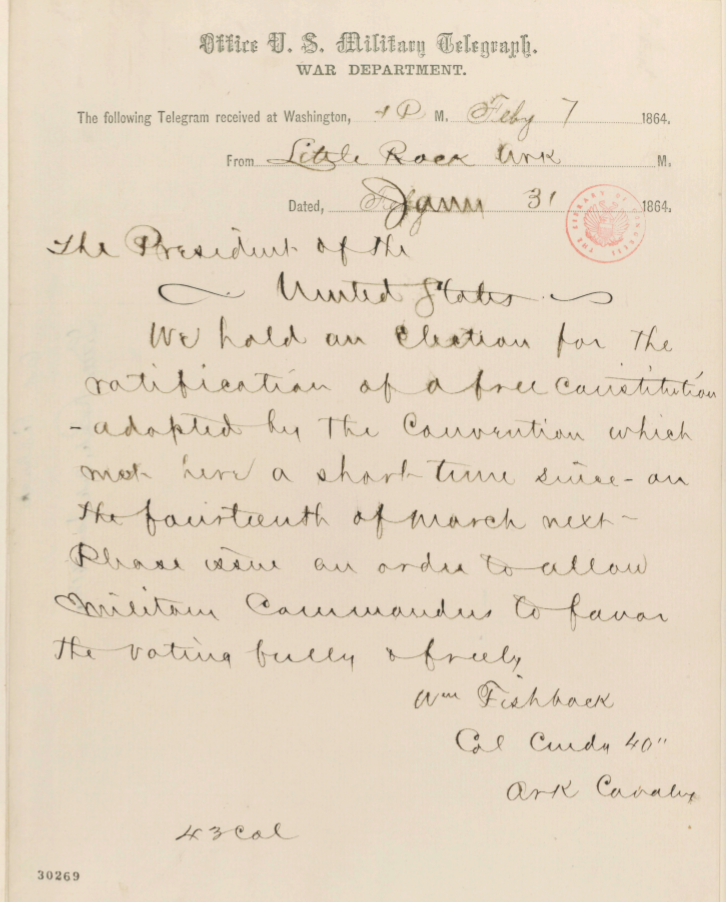 Office U. S. Military Telegraph.
WAR DEPARTMENT.
The following Telegram received at Washington, 4 P M. Feby 7 1864,
From Little Rock Ark M.
Dated, Jany 31 1864,
The President of the
United States
We hold an election for the
ratification of a free constitution
- adopted by the Convention which
met here a short time since - on
the fourteenth of March next -
Please issue an order to allow
Military Commanders to favor
the voting fully & freely
Wm Fishback
Col Cmdg 40"
Ark Cavalry
43 Col
30269